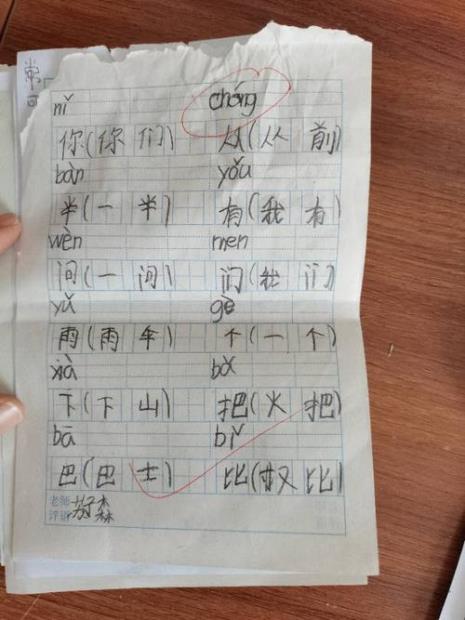 常
nǐ chóng
你(你们) 从(从前)
bàn yǒu
半(一半) 有(我有)
wèn men
问(一问) 们(我们)
yǔ gè
雨(雨伞) 个(一个)
xià bǎ
下(下山) 把(火把)
bā bǐ
巴(巴士) 比(好比)
老师
评语